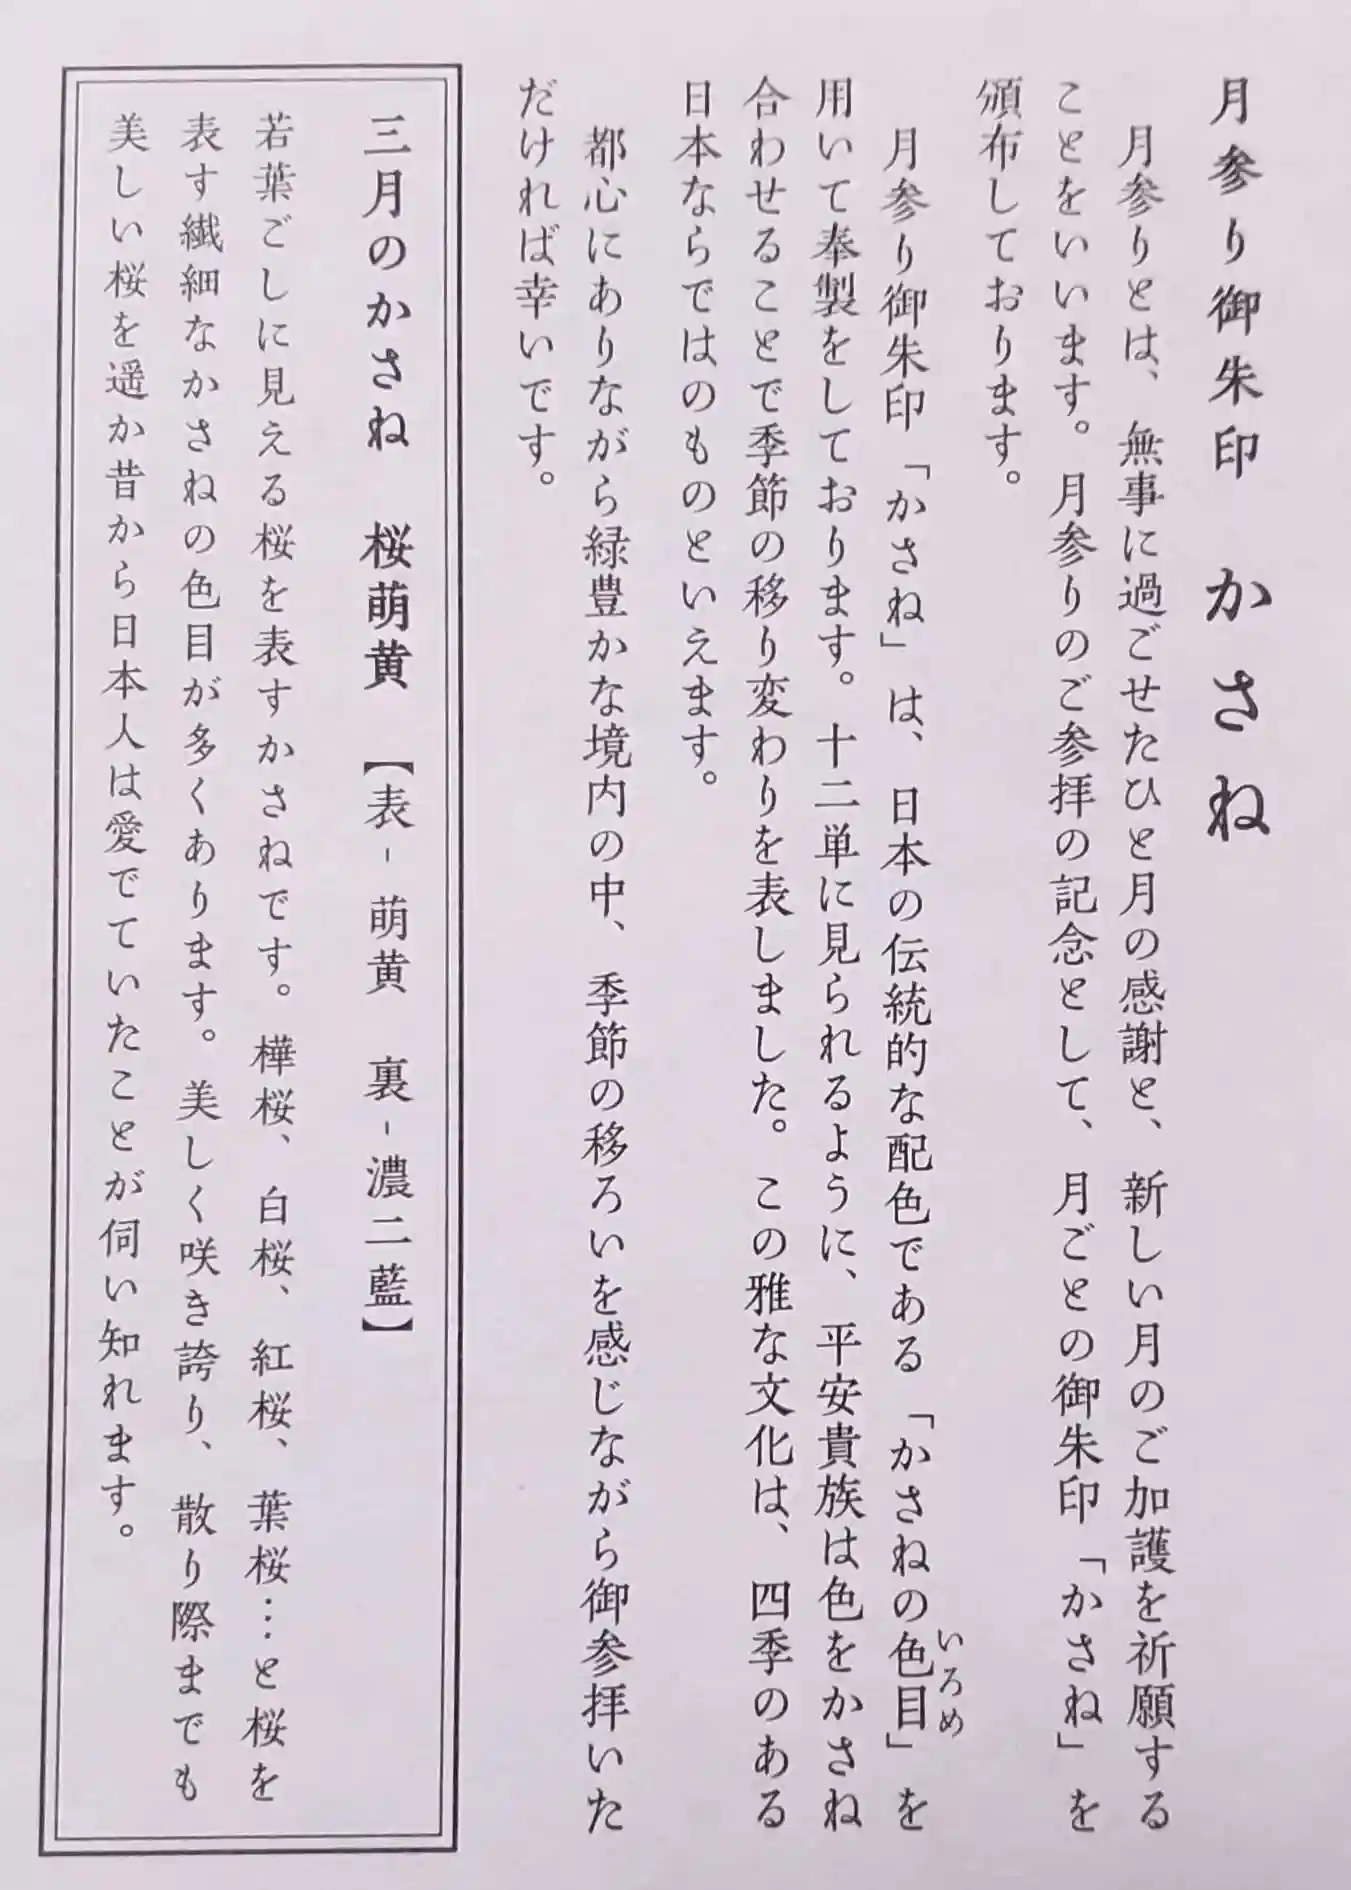 月参り御朱印　かさね
月参りとは、無事に過ごせたひと月の感謝と、新しい月のご加護を祈願する
ことをいいます。月参りのご参拝の記念として、月ごとの御朱印「かさね」を
頒布しております。
月参り御朱印「かさね」は、日本の伝統的な配色である「かさねの色目」を
いろめ
用いて奉製をしております。十二単に見られるように、平安貴族は色をかさね
合わせることで季節の移り変わりを表しました。この雅な文化は、四季のある
日本ならではのものといえます。
都心にありながら緑豊かな境内の中、季節の移ろいを感じながら御参拝いた
だければ幸いです。
三月のかさね　桜萌黄【表-萌黄　裏-濃二藍】
若葉ごしに見える桜を表すかさねです。樺桜、白桜、紅桜、葉桜…と桜を
表す繊細なかさねの色目が多くあります。美しく咲き誇り、散り際までも
美しい桜を遥か昔から日本人は愛でていたことが伺い知れます。